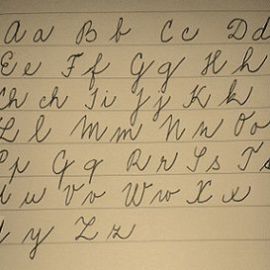 A a B b C c D d
E e F f G g H h
Ch ch I i J j K k
L l M m N n O o
P p Q q R r S s T s
u V v W w X x
y Z z